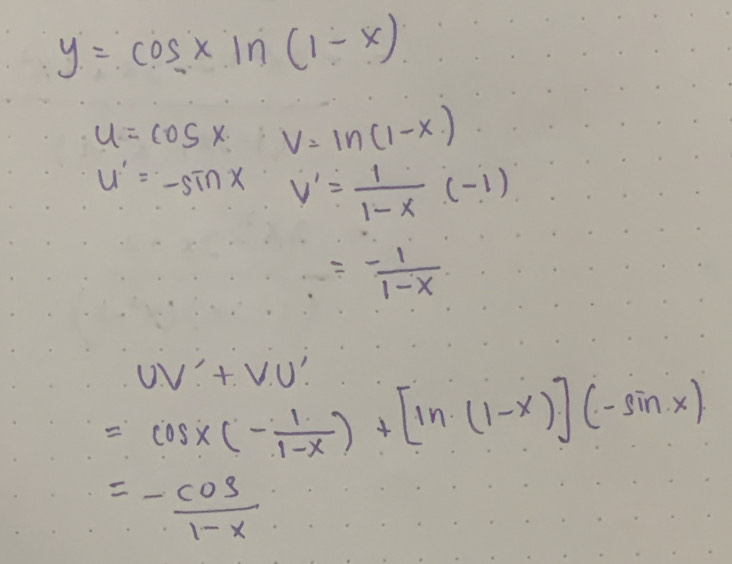 y = cos x ln (1 - x)
u = cos x v = ln (1 - x)
u' = -sin x v' = 1/(1 - x) (-1)
= -1/(1 - x)
uv' + vu'
= cos x (-1/(1 - x)) + [ln (1 - x)] (-sin x)
= -cos/(1 - x)